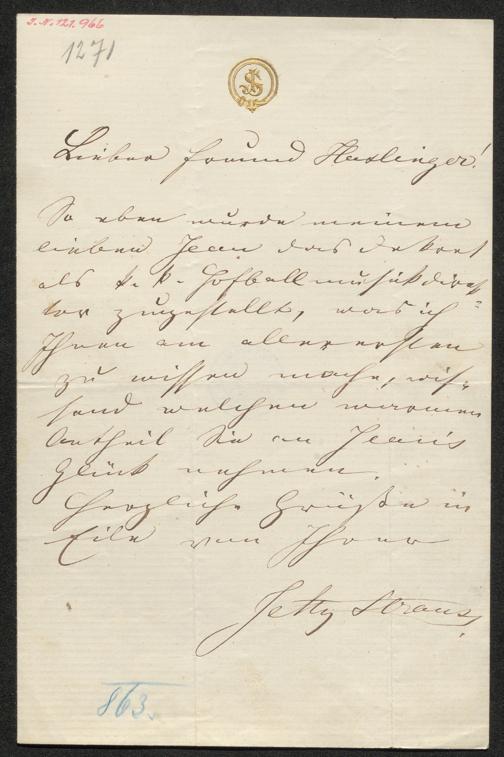 I.N. 121.966
1271
JS
Lieber Freund Haslinger!
So eben wurde meinem
lieben Jean das Dekret
als k. k. Hofballmusikdirek-
tor zugestellt, was ich
Ihnen am allerersten
zu wissen mache, wis-
send welchen warmen
Antheil Sie an Jean's
Glück nehmen.
Herzliche Grüße in
Eile von Ihrer
Jetty Strauss
863.